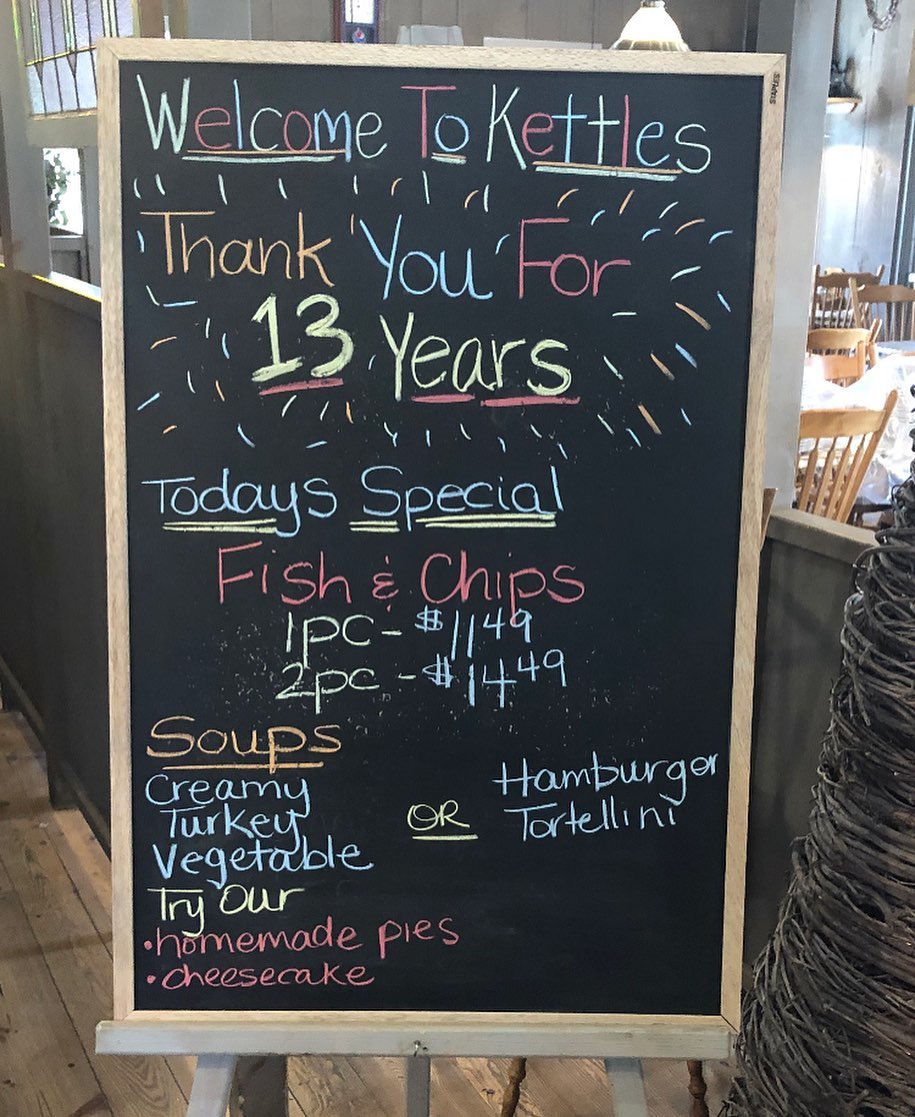 Welcome To Kettles
Thank You For
13 Years
Todays Special
Fish & Chips
1pc - $11.49
2pc - $14.49
Soups
Creamy
Turkey
Vegetable
OR
Hamburger
Tortellini
Try Our
• homemade pies
• cheesecake
STAPLES